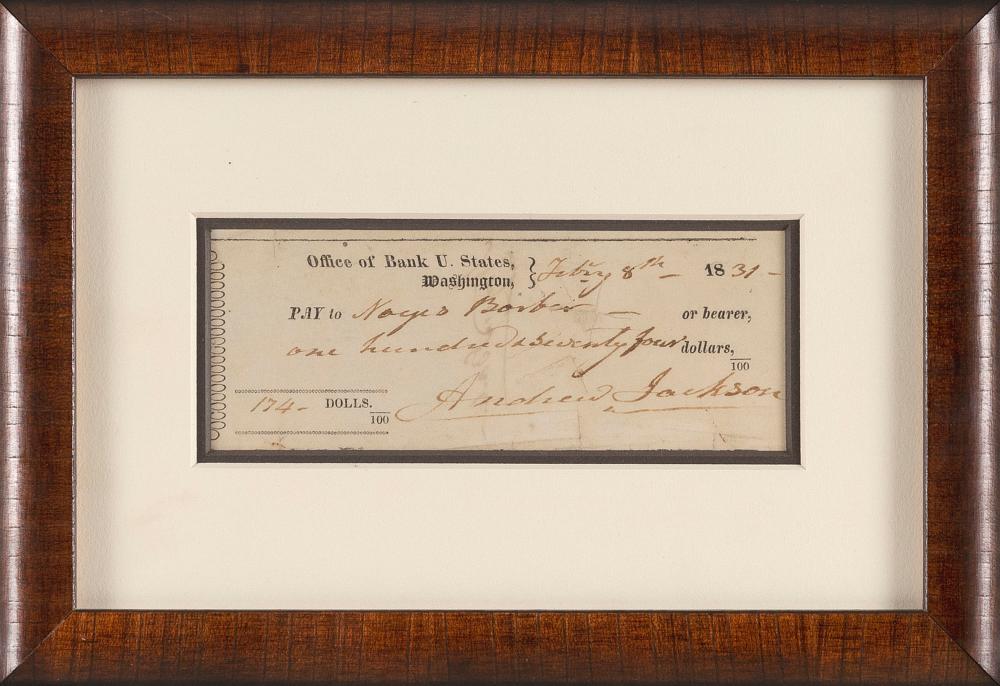 Office of Bank U. States,
Washington, } Febry 8th 1831
PAY to Noyes Barber or bearer,
one hundred & seventy four dollars, /100
174 DOLLS. /100
Andrew Jackson